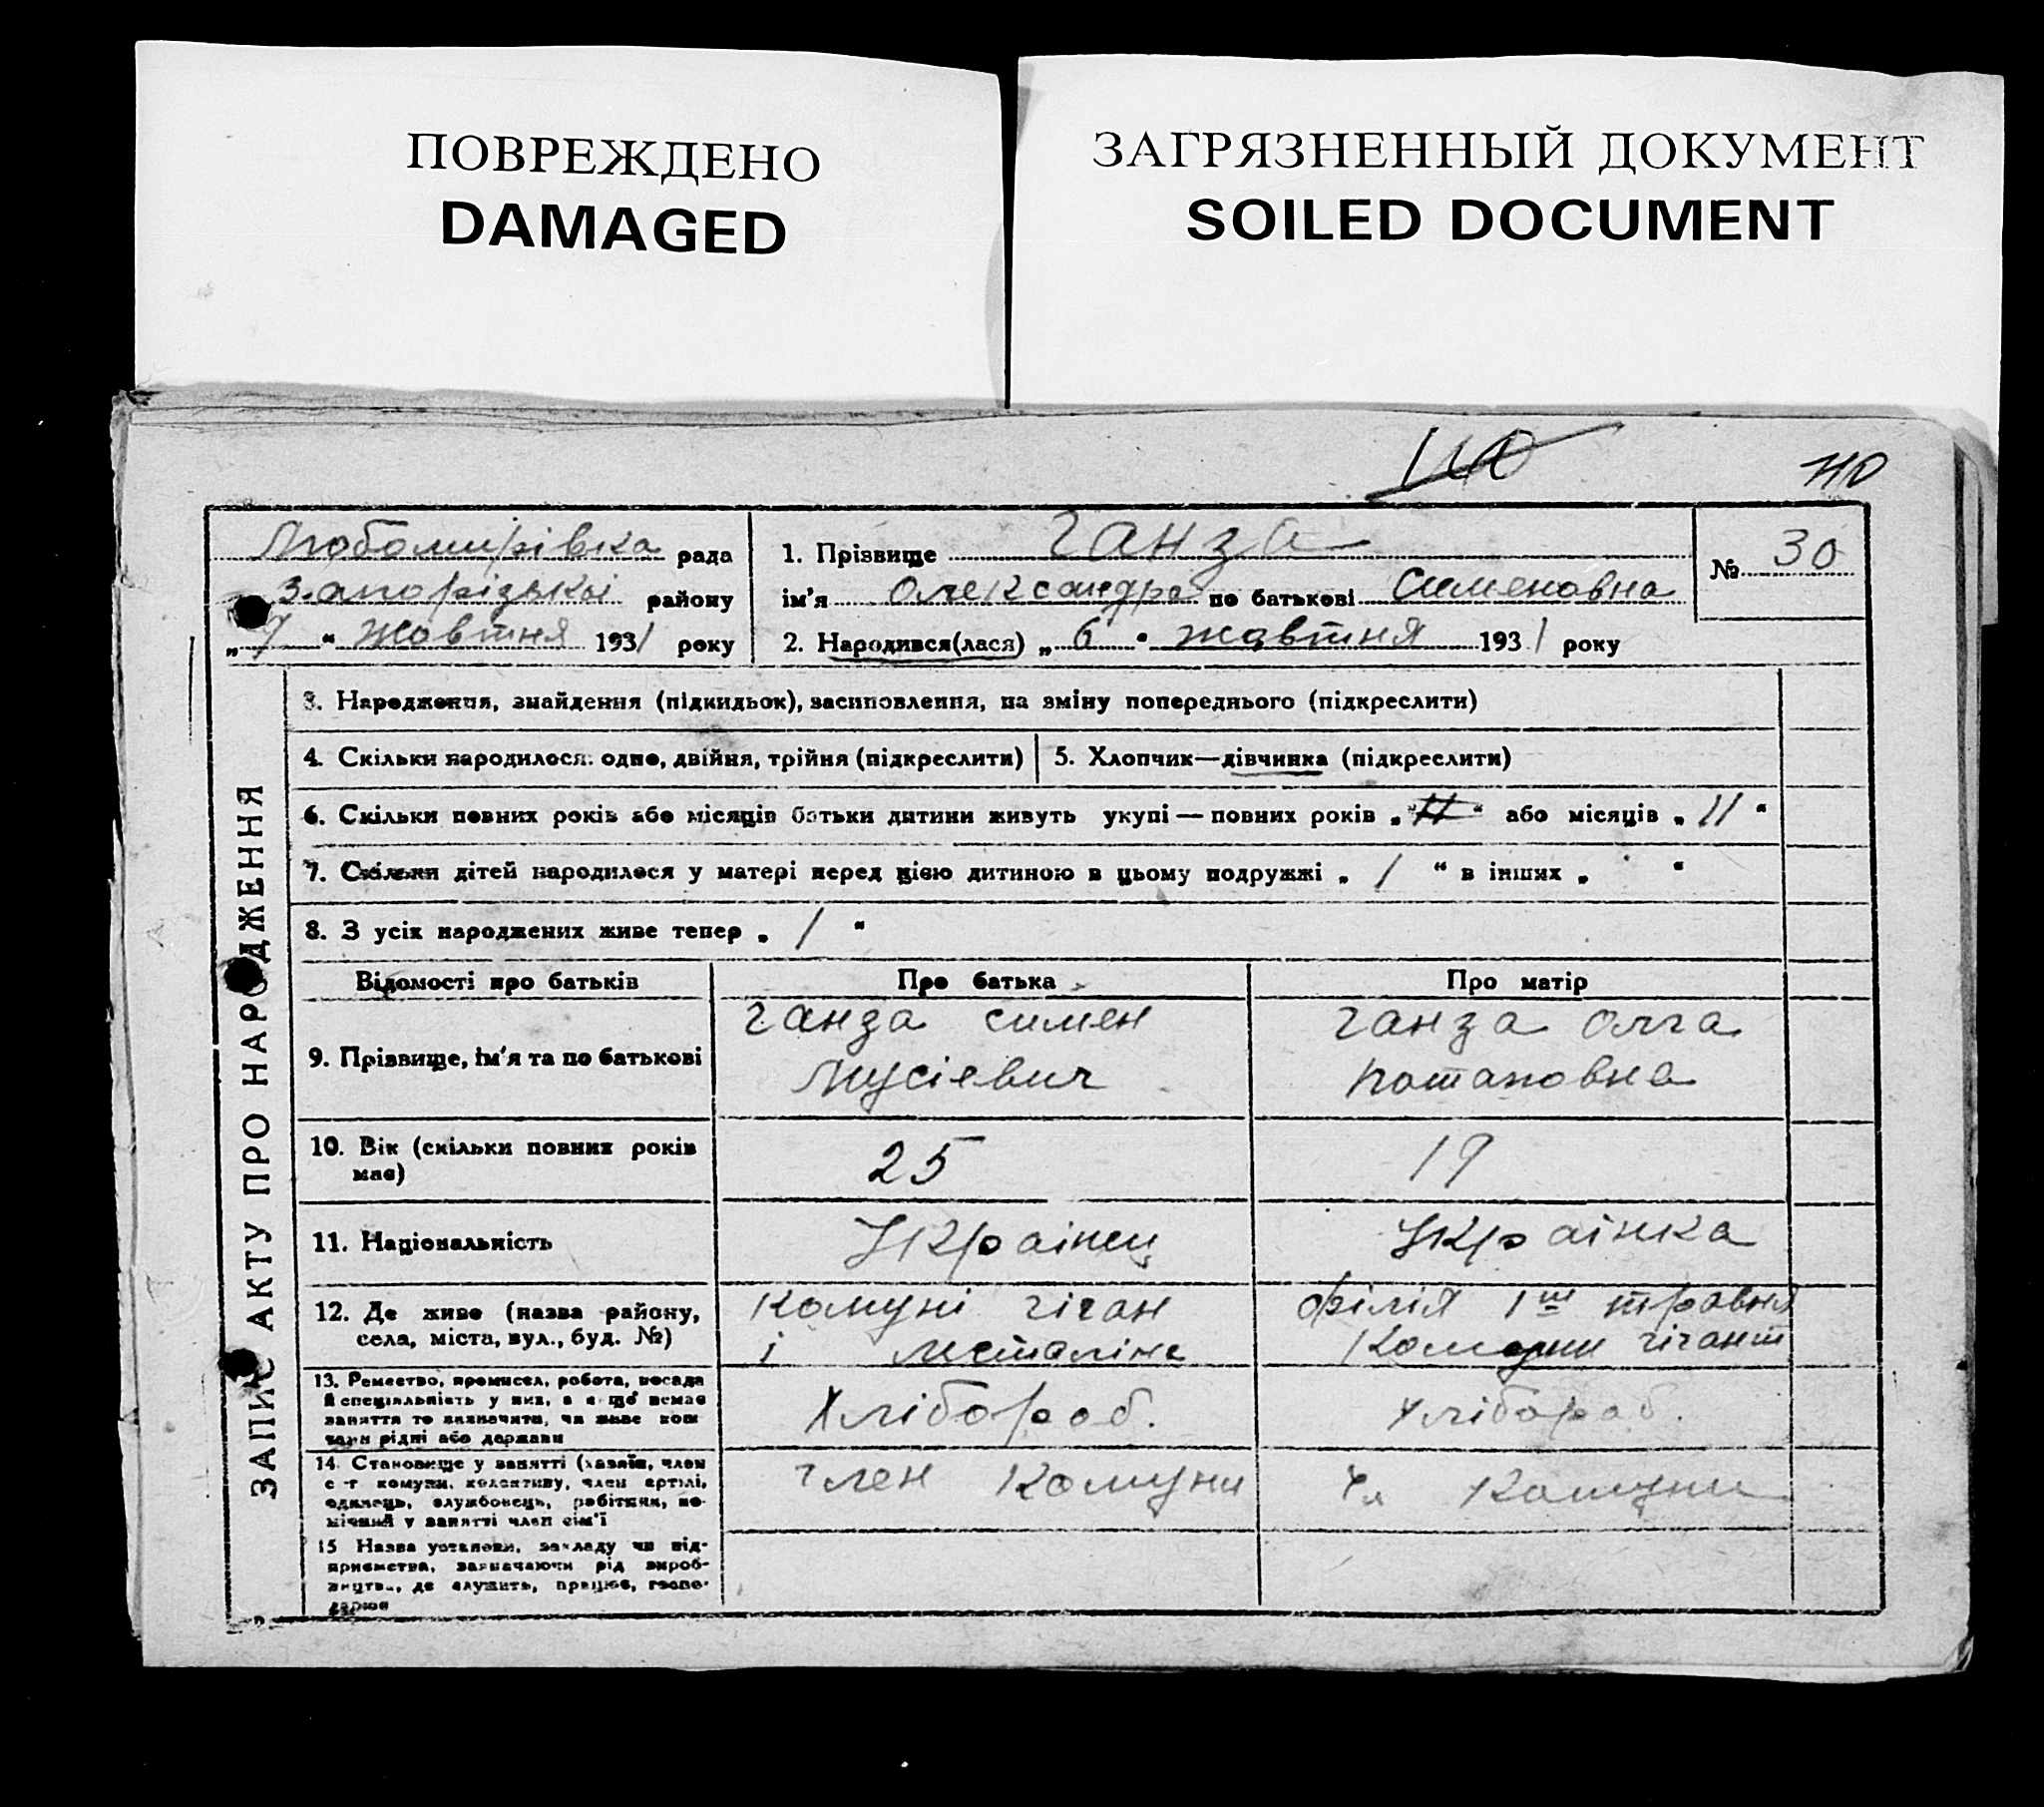 ПОВРЕЖДЕНО
DAMAGED
ЗАГРЯЗНЕННЫЙ ДОКУМЕНТ
SOILED DOCUMENT
110
110
Любомирівка рада
Запорізької району
„ 7 “ жовтня 1931 року
1. Прізвище Ганза
ім'я Олександра по батькові Сименовна
2. Народився(лася) „ 6 “ жовтня 1931 року
№ 30
ЗАПИС АКТУ ПРО НАРОДЖЕННЯ
3. Народження, знайдення (підкидьок), засиновлення, на зміну попереднього (підкреслити)
4. Скільки народилося: одно, двійня, трійня (підкреслити)
5. Хлопчик—дівчинка (підкреслити)
6. Скільки повних років або місяців батьки дитини живуть укупі — повних років „ 11 “ або місяців „ 11 “
7. Скільки дітей народилося у матері перед цією дитиною в цьому подружжі „ 1 “ в інших „ “
8. З усіх народжених живе тепер „ 1 “
Відомості про батьків
Про батька
Про матір
9. Прізвище, ім'я та по батькові
Ганза Симен
Мусієвич
Ганза Олга
Потаповна
10. Вік (скільки повних років
має)
25
19
11. Національність
Українец
Українка
12. Де живе (назва району,
села, міста, вул., буд. №)
Комуні гіган
і
філія 1ш травня
Комуни гігант
13. Ремество, промисел, робота, посада
й спеціяльність у них, а якщо немає
заняття то визначити, чи живе кош
тами рідні або держави
Хлібороб.
Хлібороб.
14. Становище у занятті (хазяїн, член
с-г комуни, колективу, член артілі,
одинець, службовець, робітник, по-
мічний у занятті член сім'ї
Член Комуни
Чл Комуни
15 Назва установи, закладу чи під-
приємства, зазначаючи рід вироб-
ництва, де служить, працює, госпо-
дарює